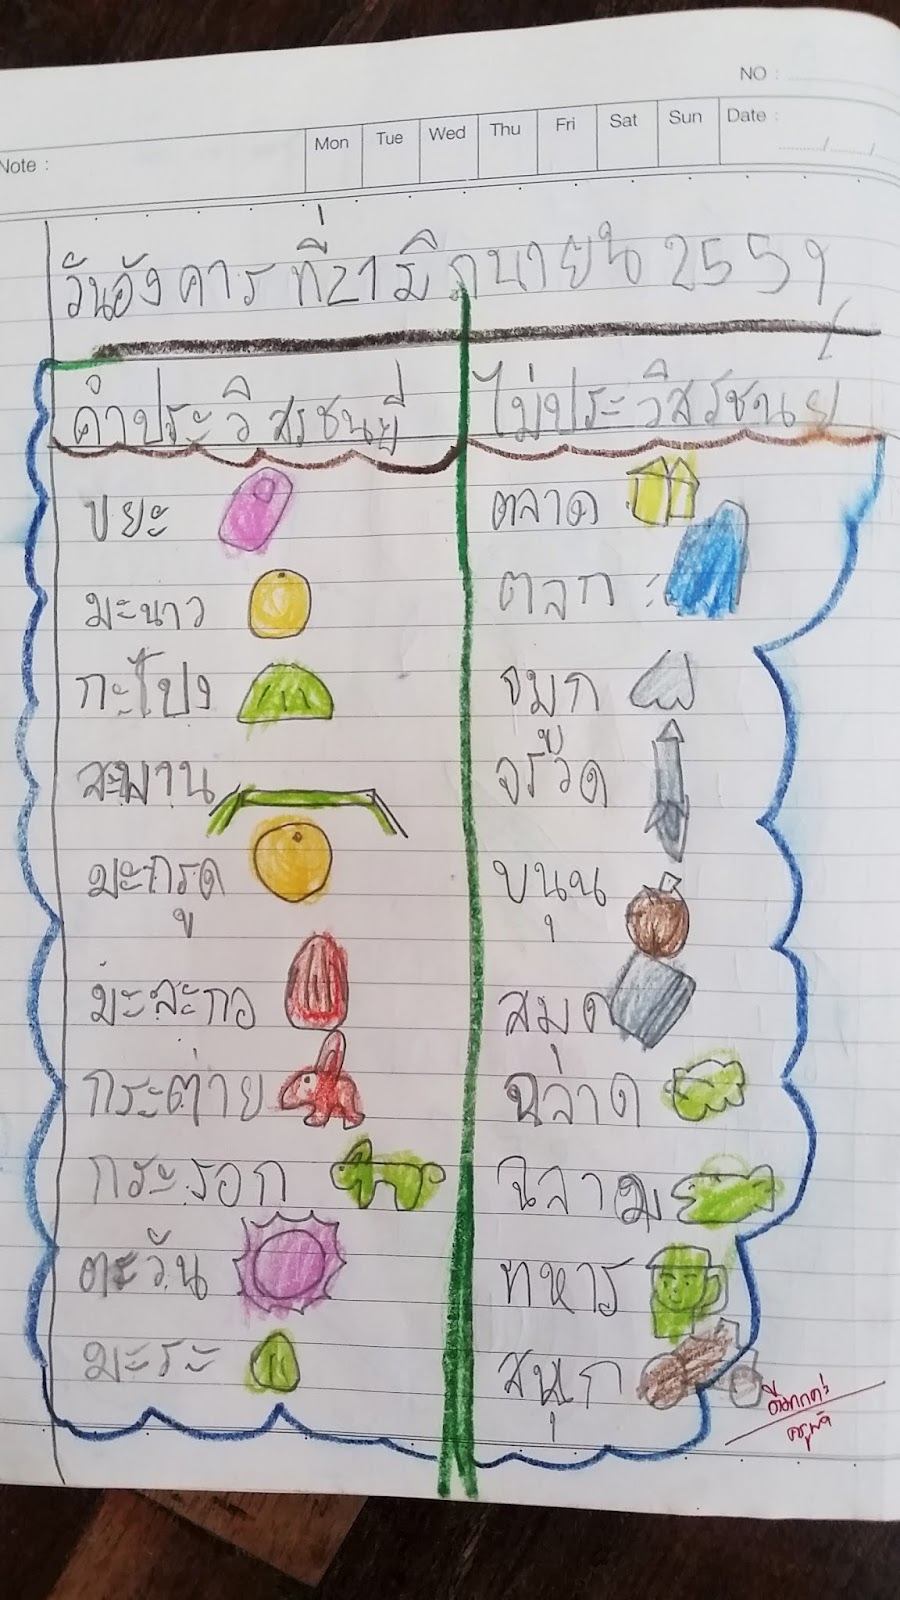 NO :
Note :
Mon Tue Wed Thu Fri Sat Sun Date :
วันอังคาร ที่ 21 มิถุนายน 2559
คำประวิสรชนีย์
ไม่ประวิสรชนีย์
ขยะ
มะนาว
กะโปง
สะพาน
มะกรูด
มะละกอ
กระต่าย
กระรอก
ตะวัน
มะระ
ตลาด
ตลก
จมูก
จรวด
ขนุน
สมุด
ฉลาด
ฉลาม
ทหาร
สนุก